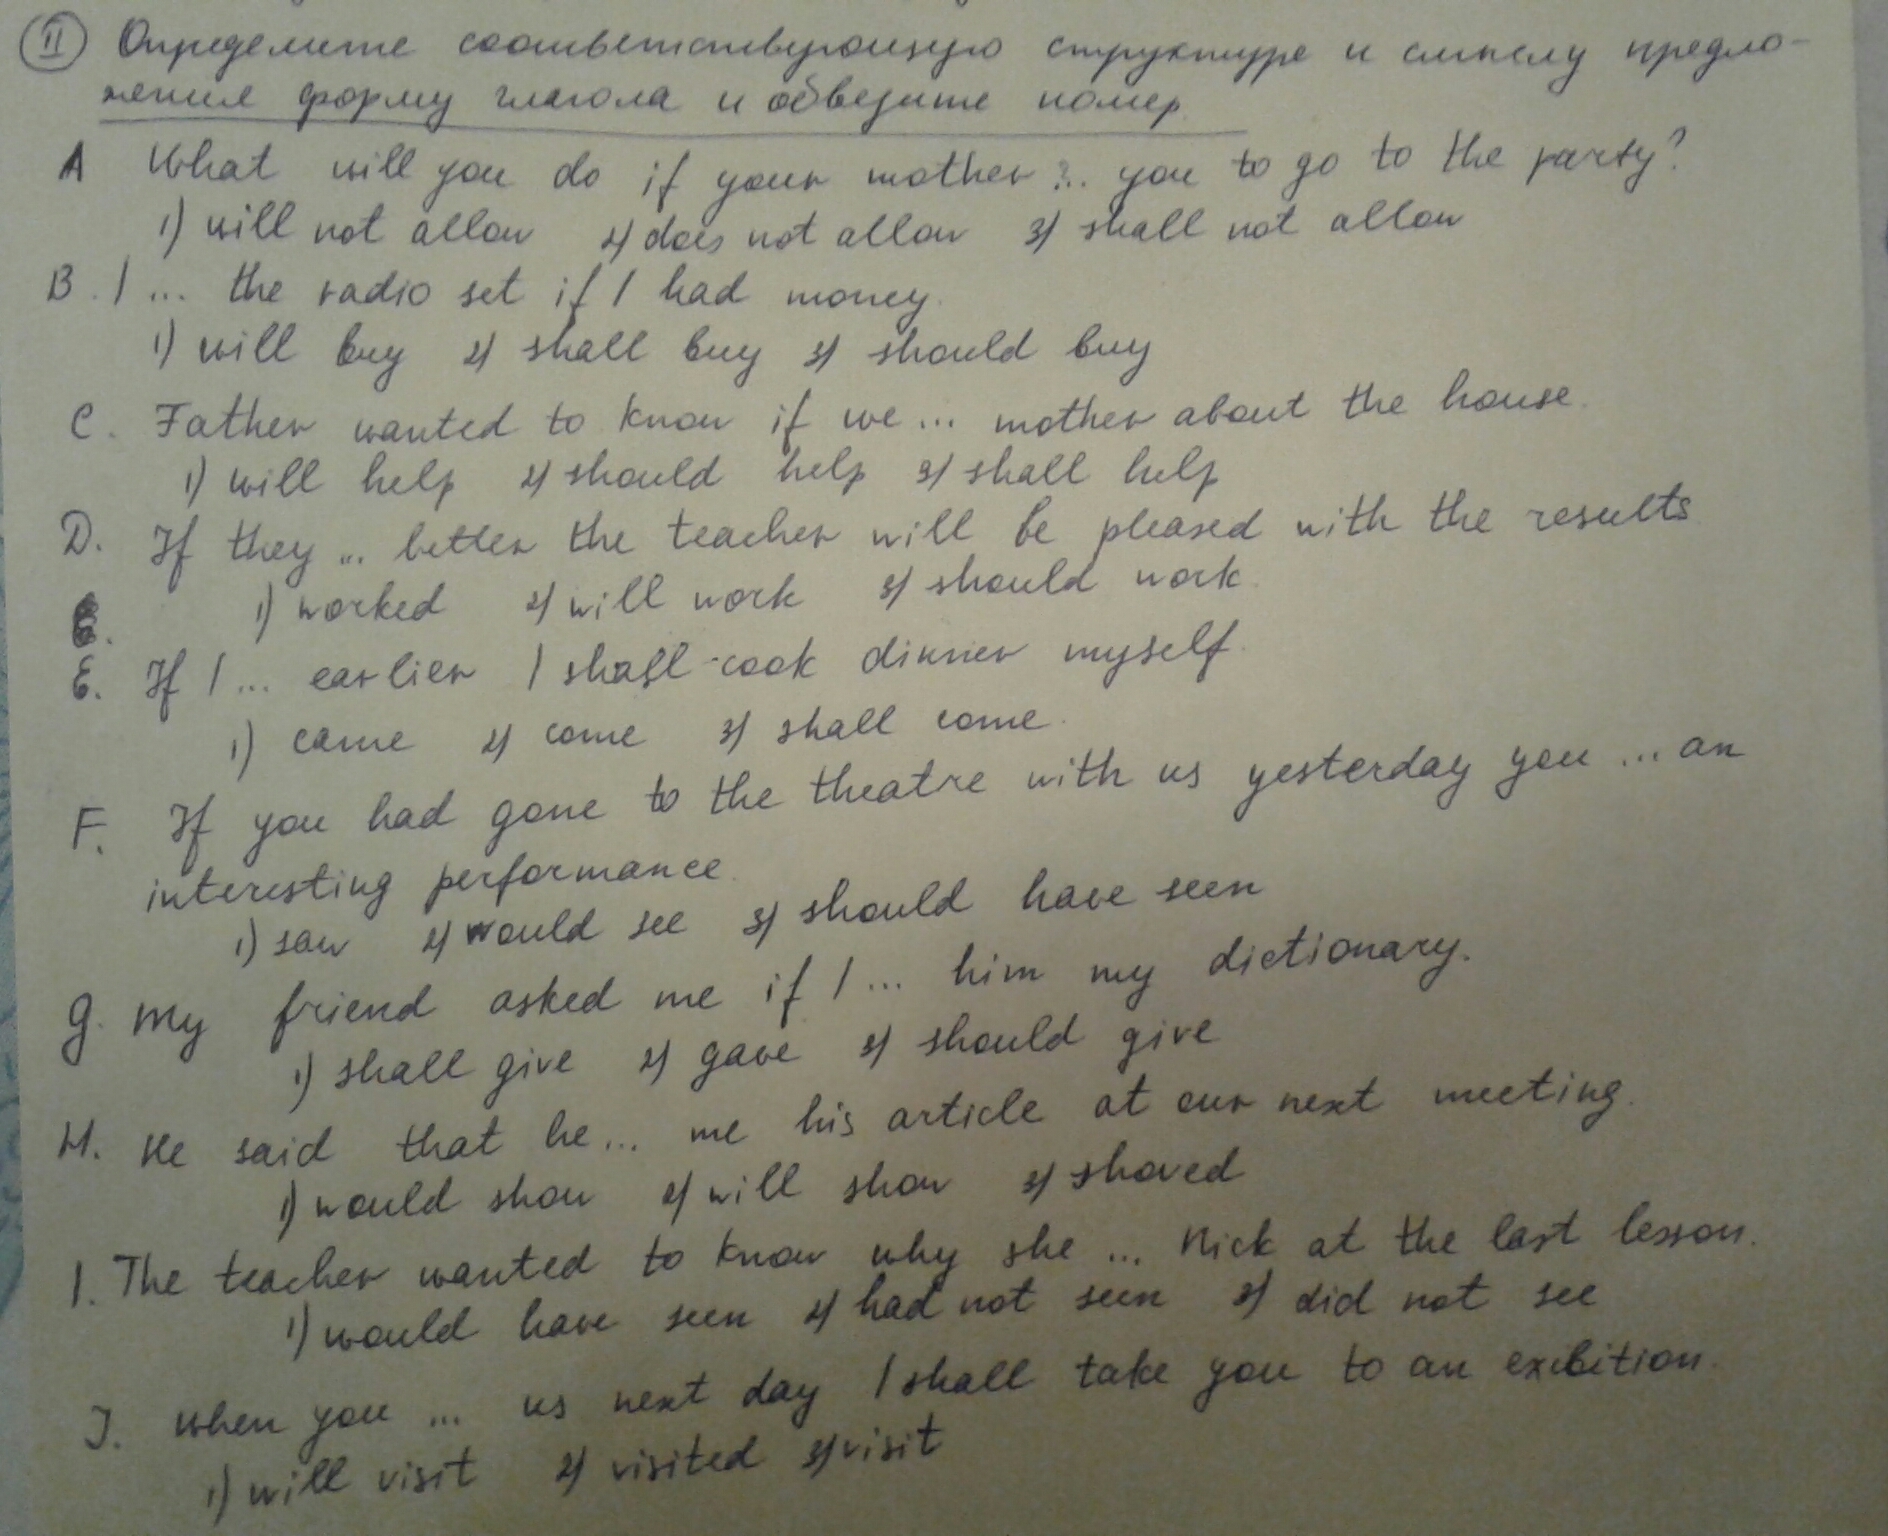 II Определите соответствующую структуре и смыслу предло-
жения форму глагола и обведите номер
A What will you do if your mother ... you to go to the party?
1) will not allow 2) does not allow 3) shall not allow
B. I ... the radio set if I had money.
1) will buy 2) shall buy 3) should buy
C. Father wanted to know if we ... mother about the house.
1) will help 2) should help 3) shall help
D. If they ... better the teacher will be pleased with the results
1) worked 2) will work 3) should work.
E. If I ... earlier I shall cook dinner myself.
1) came 2) come 3) shall come.
F. If you had gone to the theatre with us yesterday you ... an
interesting performance.
1) saw 2) would see 3) should have seen
G. My friend asked me if I ... him my dictionary.
1) shall give 2) gave 3) should give
H. He said that he ... me his article at our next meeting.
1) would show 2) will show 3) showed
I. The teacher wanted to know why she ... Nick at the last lesson.
1) would have seen 2) had not seen 3) did not see
J. When you ... us next day I shall take you to an exibition.
1) will visit 2) visited 3) visit